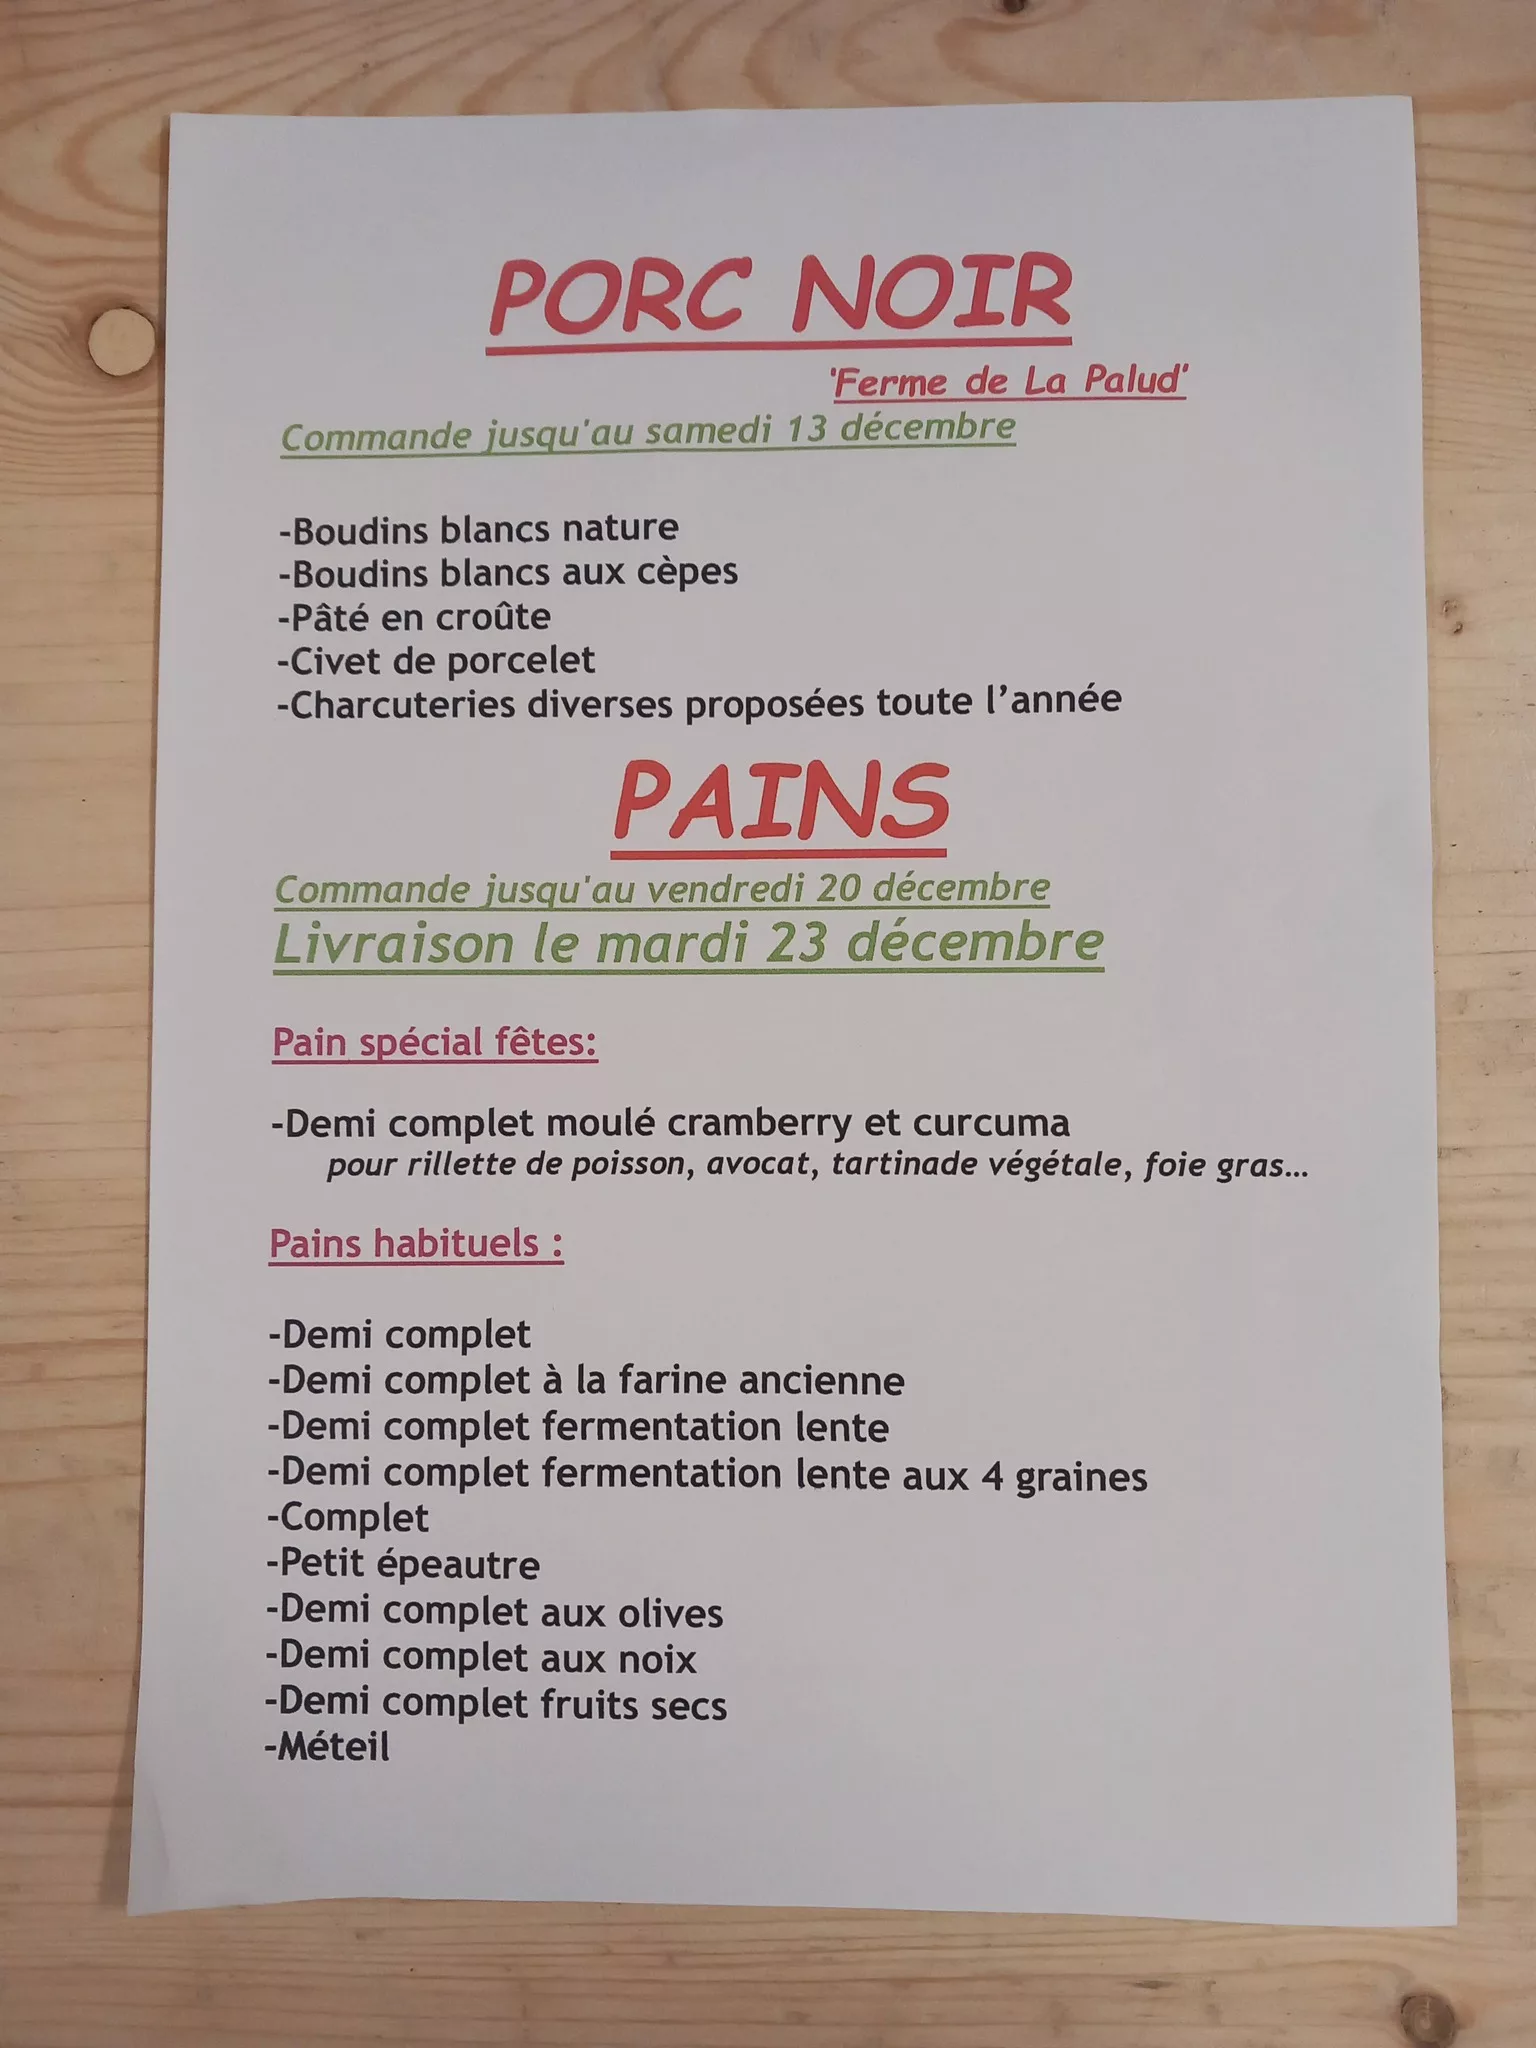 PORC NOIR
'Ferme de La Palud'
Commande jusqu'au samedi 13 décembre
-Boudins blancs nature
-Boudins blancs aux cèpes
-Pâté en croûte
-Civet de porcelet
-Charcuteries diverses proposées toute l’année
PAINS
Commande jusqu'au vendredi 20 décembre
Livraison le mardi 23 décembre
Pain spécial fêtes:
-Demi complet moulé cramberry et curcuma
pour rillette de poisson, avocat, tartinade végétale, foie gras…
Pains habituels :
-Demi complet
-Demi complet à la farine ancienne
-Demi complet fermentation lente
-Demi complet fermentation lente aux 4 graines
-Complet
-Petit épeautre
-Demi complet aux olives
-Demi complet aux noix
-Demi complet fruits secs
-Méteil